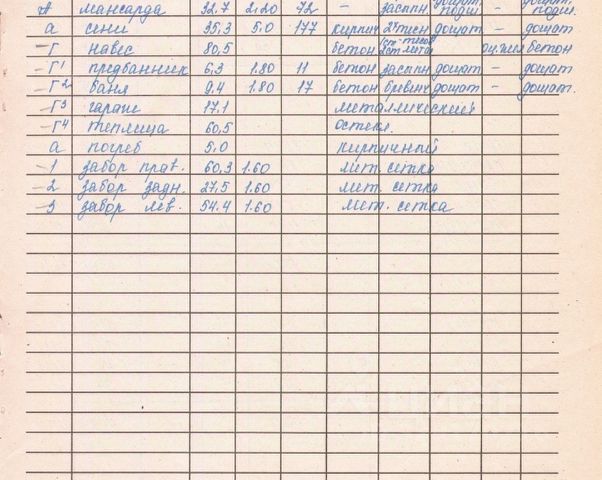 А мансарда 32.7 2.20 72 – засыпн. дощат. подш. – дощат. подш.
а сени 35,3 5.0 177 кирпич дощат – дощат
Г навес 80,5 бетон оц.жел бетон
Г¹ предбанник 6,3 1.80 11 бетон засыпн дощат – дощат
Г² баня 9.4 1.80 17 бетон бревенч дощат – дощат.
Г³ гараж 17.1 металлический
Г⁴ теплица 60,5 остекл.
а погреб 5.0 кирпичный
1 забор прав. 60,3 1.60 мет. сетка
2 забор задн. 27,5 1.60 мет. сетка
3 забор лев. 54.4 1.60 мет. сетка